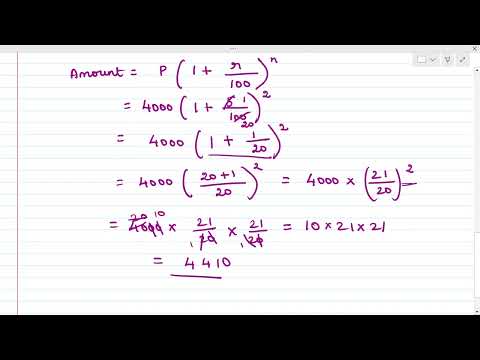 Amount = P ( 1 + r/100 )^n
= 4000 ( 1 + 5 1/100 20 )^2
= 4000 ( 1 + 1/20 )^2
= 4000 ( 20+1/20 )^2 = 4000 × ( 21/20 )^2
= 4000 20 10 × 21/20 1 × 21/20 1 = 10 × 21 × 21
= 4410